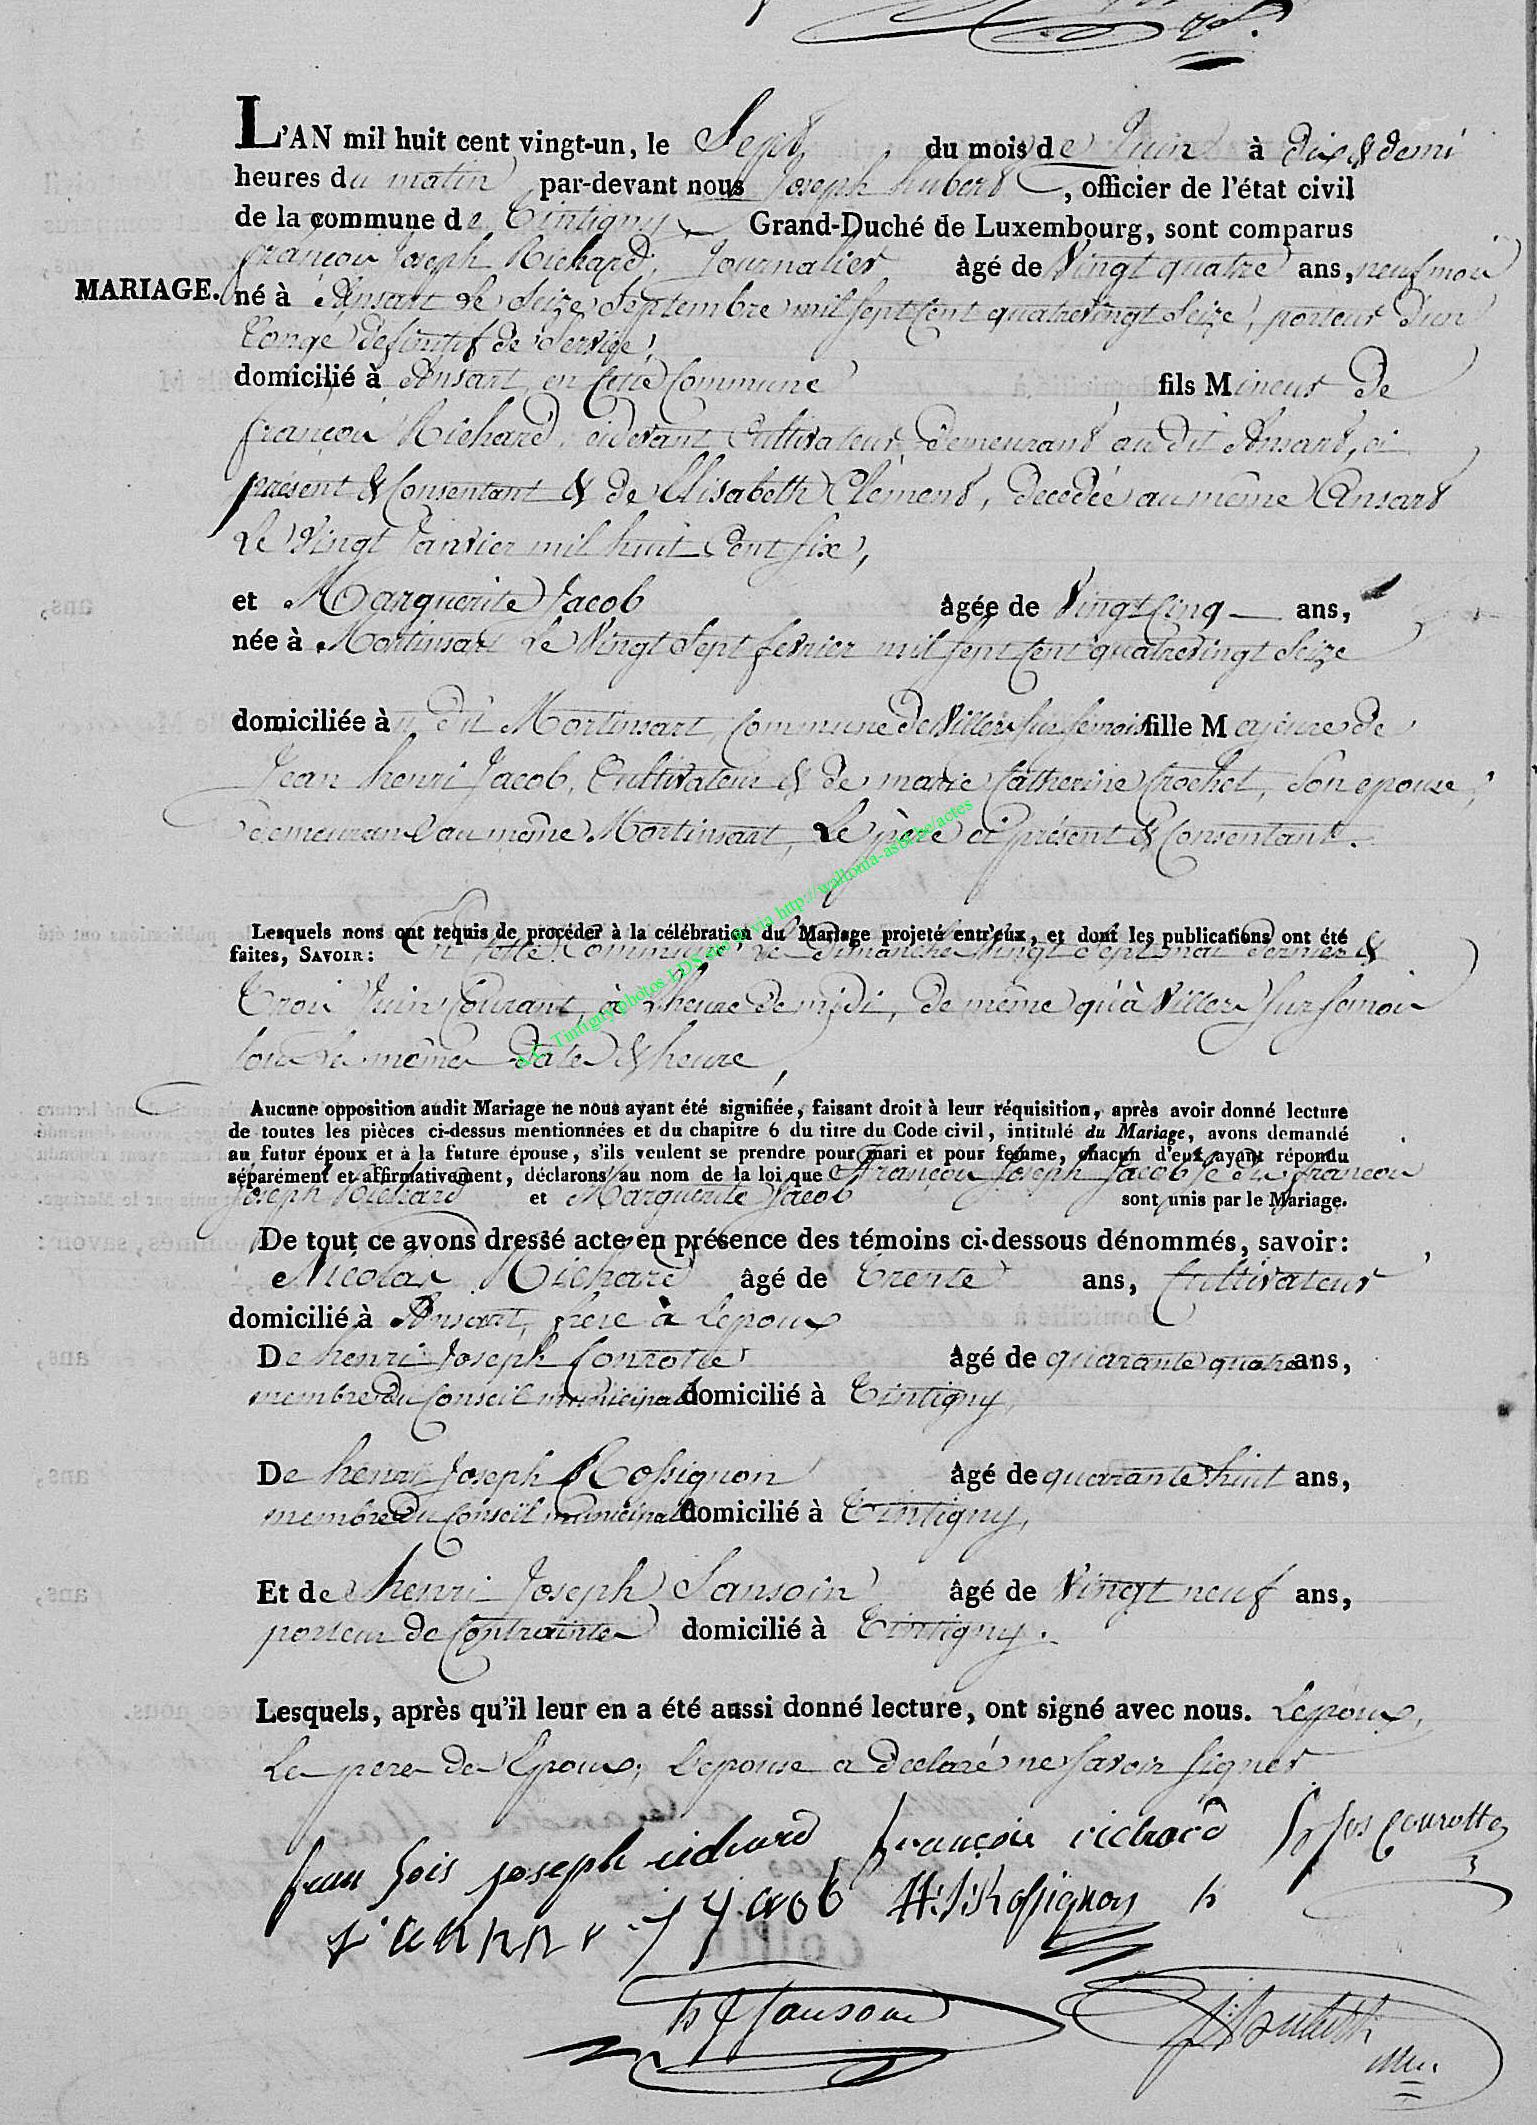 L'AN mil huit cent vingt-un, le Sept du mois de Juin à dix & demi
heures du matin par-devant nous Joseph hubert, officier de l'état civil
de la commune de Tintigny Grand-Duché de Luxembourg, sont comparus
françois Joseph Richard, Journalier âgé de Vingt quatre ans, neuf mois
MARIAGE. né à Ansart le Seize Septembre mil sept Cent quatrevingt Seize, porteur d'un
Congé définitif de Service,
domicilié à Ansart en Cette Commune fils Mineur de
françois Richard, cidevant Cultivateur demeurant au dit Ansart, ci
présent & Consentant & de Elisabeth Clément, décédée au même Ansart
Le Vingt Janvier mil huit Cent Six,
et Marguerite Jacob âgée de Vingt Cinq ans,
née à Mortinsart Le Vingt Sept fevrier mil sept Cent quatrevingt Seize
domiciliée à u dit Mortinsart, Commune de Villers sur semois fille Majeure de
Jean henri Jacob, Cultivateur & de marie Catherine Crochet, Son epouse,
demeurant au même Mortinsart, Le père ci présent & Consentant.
Lesquels nous ont requis de procéder à la célébration du Mariage projeté entr'eux, et dont les publications ont été
faites, SAVOIR: En Cette Commune, Le Dimanche Vingt Sept mai dernier &
Trois Juin Courant, à L'heure de midi, de même qu'à Villers sur semois
les mêmes Dates & heure,
Aucune opposition audit Mariage ne nous ayant été signifiée, faisant droit à leur réquisition, après avoir donné lecture
de toutes les pièces ci-dessus mentionnées et du chapitre 6 du titre du Code civil, intitulé du Mariage, avons demandé
au futur époux et à la future épouse, s'ils veulent se prendre pour mari et pour femme, chacun d'eux ayant répondu
séparément et affirmativement, déclarons au nom de la loi que François Joseph Jacob françois
Joseph Richard et Marguerite Jacob sont unis par le Mariage.
De tout ce avons dressé acte en présence des témoins ci-dessous dénommés, savoir:
Nicolas Richard âgé de Trente ans, Cultivateur
domicilié à Ansart, frere à Lepoux
De henri Joseph Conrotte âgé de quarante quatre ans,
membre du Conseil municipal domicilié à Tintigny,
De henri Joseph Rossignon âgé de quarante huit ans,
membre du Conseil municipal domicilié à Tintigny,
Et de henri Joseph Sansoin âgé de Vingt neuf ans,
porteur de Contrainte domicilié à Tintigny.
Lesquels, après qu'il leur en a été aussi donné lecture, ont signé avec nous. Lepoux,
Le pere de Epoux, Lepouse a declaré ne Savoir Signer
fran sois joseph richard françois richard h Jos Conrotte
jacob H: J: Rossignon
h J Sansoin J: hubert
A.E. Tintigny photos LDS site fs via http://wallonia-asbl.be/actes